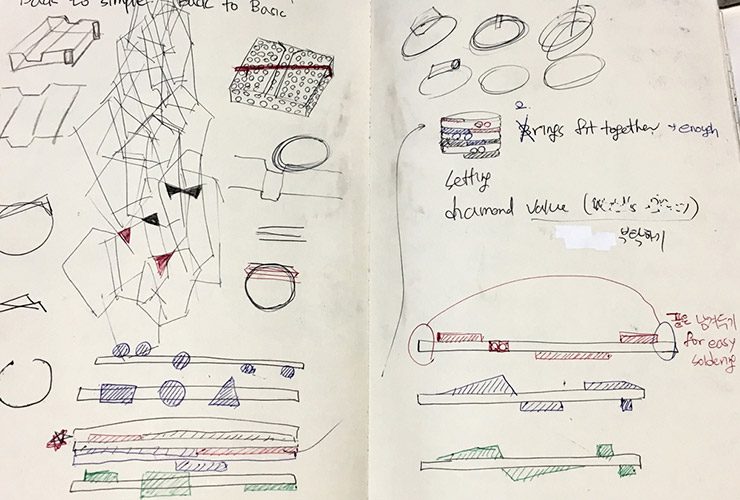 Back to simple Back to Basic
2
rings fit together → enough
setting
diamond value
부탁하기
남겨두기
for easy
soldering